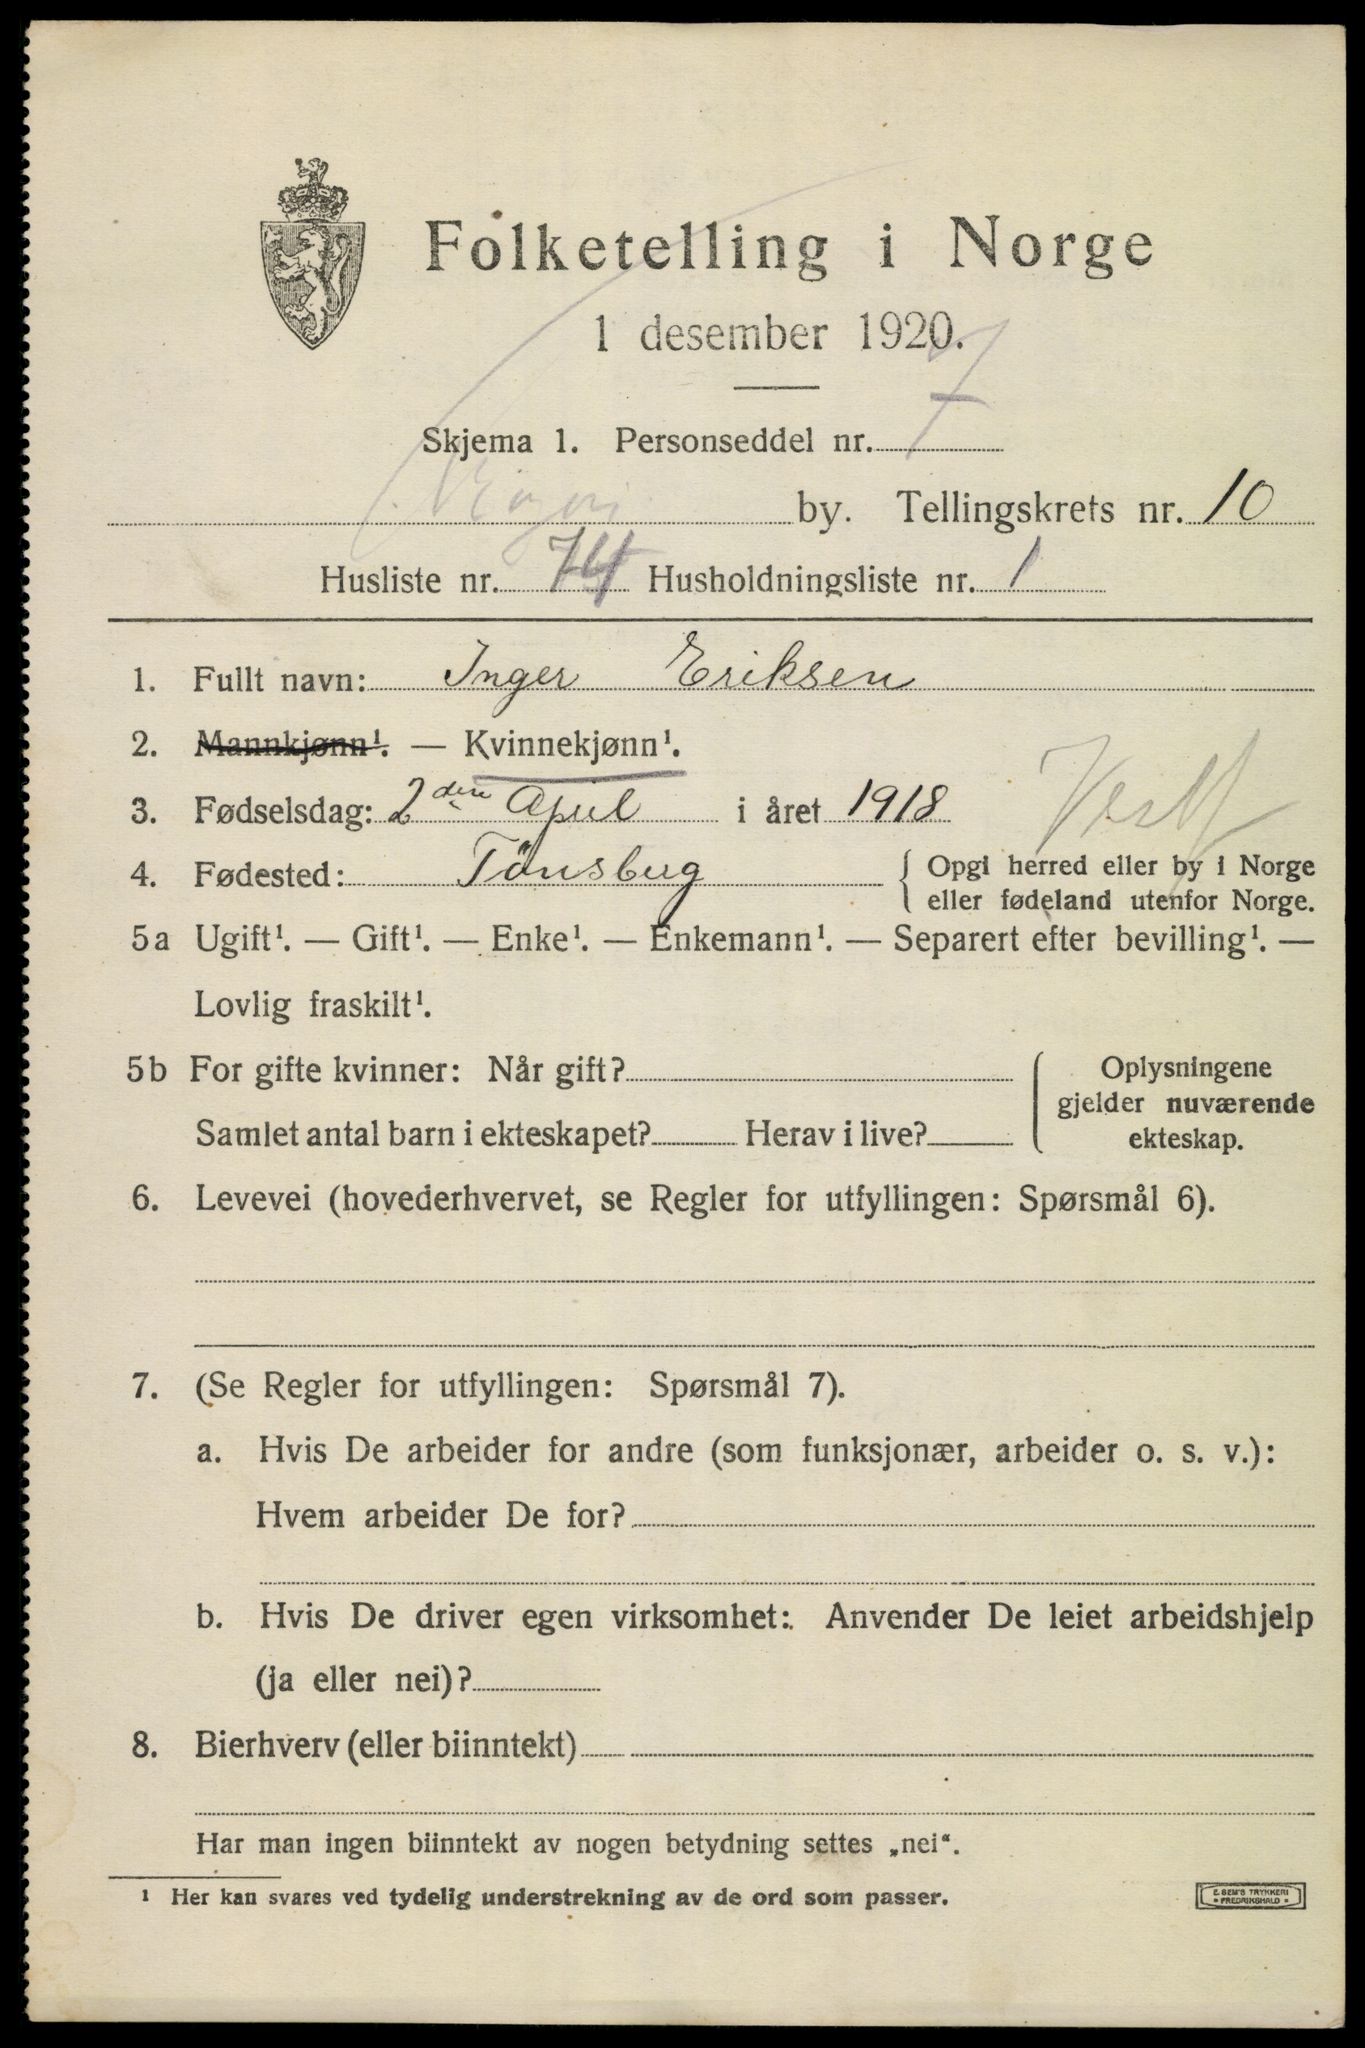 Folketelling i Norge
1 desember 1920.
Skjema 1. Personseddel nr. 7
by. Tellingskrets nr. 10
Husliste nr. 74 Husholdningsliste nr. 1
1. Fullt navn: Inger Eriksen
2. Mannkjønn¹. — Kvinnekjønn¹.
3. Fødselsdag: 2den April i året 1918
4. Fødested: Tönsberg { Opgi herred eller by i Norge
eller fødeland utenfor Norge.
5a Ugift¹. — Gift¹. — Enke¹. — Enkemann¹. — Separert efter bevilling¹. —
Lovlig fraskilt¹.
5b For gifte kvinner: Når gift?
Samlet antal barn i ekteskapet? Herav i live?
Oplysningene
gjelder nuværende
ekteskap.
6. Levevei (hovederhvervet, se Regler for utfyllingen: Spørsmål 6).
7. (Se Regler for utfyllingen: Spørsmål 7).
a. Hvis De arbeider for andre (som funksjonær, arbeider o. s. v.):
Hvem arbeider De for?
b. Hvis De driver egen virksomhet: Anvender De leiet arbeidshjelp
(ja eller nei)?
8. Bierhverv (eller biinntekt)
Har man ingen biinntekt av nogen betydning settes „nei“.
¹ Her kan svares ved tydelig understrekning av de ord som passer.
E. SEM'S TRYKKERI
FREDRIKSHALD